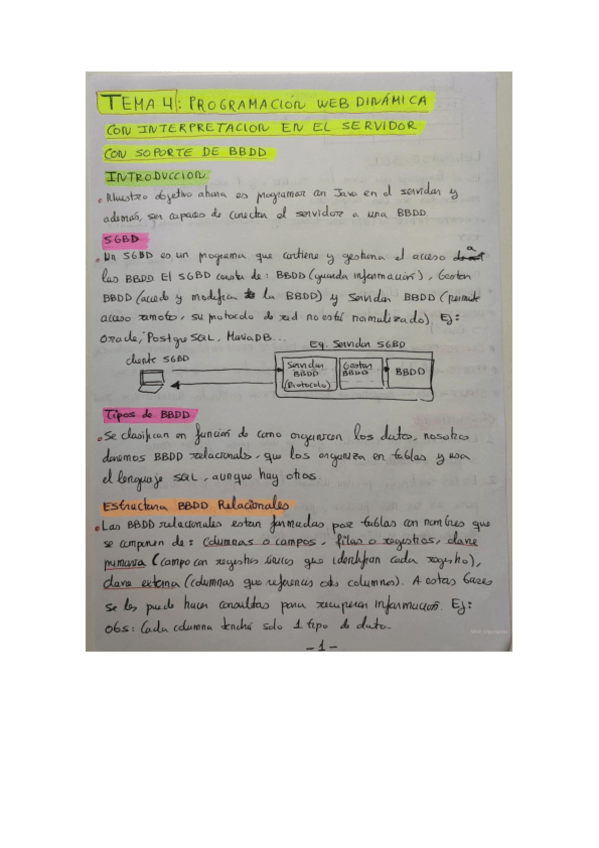 TEMA 4: PROGRAMACIÓN WEB DINÁMICA
CON INTERPRETACION EN EL SERVIDOR
CON SOPORTE DE BBDD
INTRODUCCION
• Nuestro objetivo ahora es programar con Java en el servidor y
además, ser capaces de conectar el servidor a una BBDD
SGBD
• Un SGBD es un programa que contiene y gestiona el acceso a
las BBDD El SGBD consta de: BBDD (guarda información), Gestor
BBDD (accede y modifica la BBDD) y Servidor BBDD (permite
acceso remoto, su protocolo de red no está normalizado) Ej:
Oracle, PostgreSQL, MariaDB...
Eq. Servidor SGBD
cliente SGBD
Servidor BBDD (Protocolo)
Gestor BBDD
BBDD
Tipos de BBDD
• Se clasifican en función de como organizan los datos, nosotros
daremos BBDD relacionales, que los organiza en tablas y usa
el lenguaje SQL, aunque hay otros.
Estructura BBDD Relacionales
• Las BBDD relacionales estan formadas por tablas con nombres que
se componen de: columnas o campos, filas o registros, clave
primaria (campo con registros únicos que identifican cada registro),
clave externa (columnas que referencia otras columnas). A estas bases
se les puede hacer consultas para recuperar información. Ej:
Obs: Cada columna tendrá solo 1 tipo de dato.
- 1 -